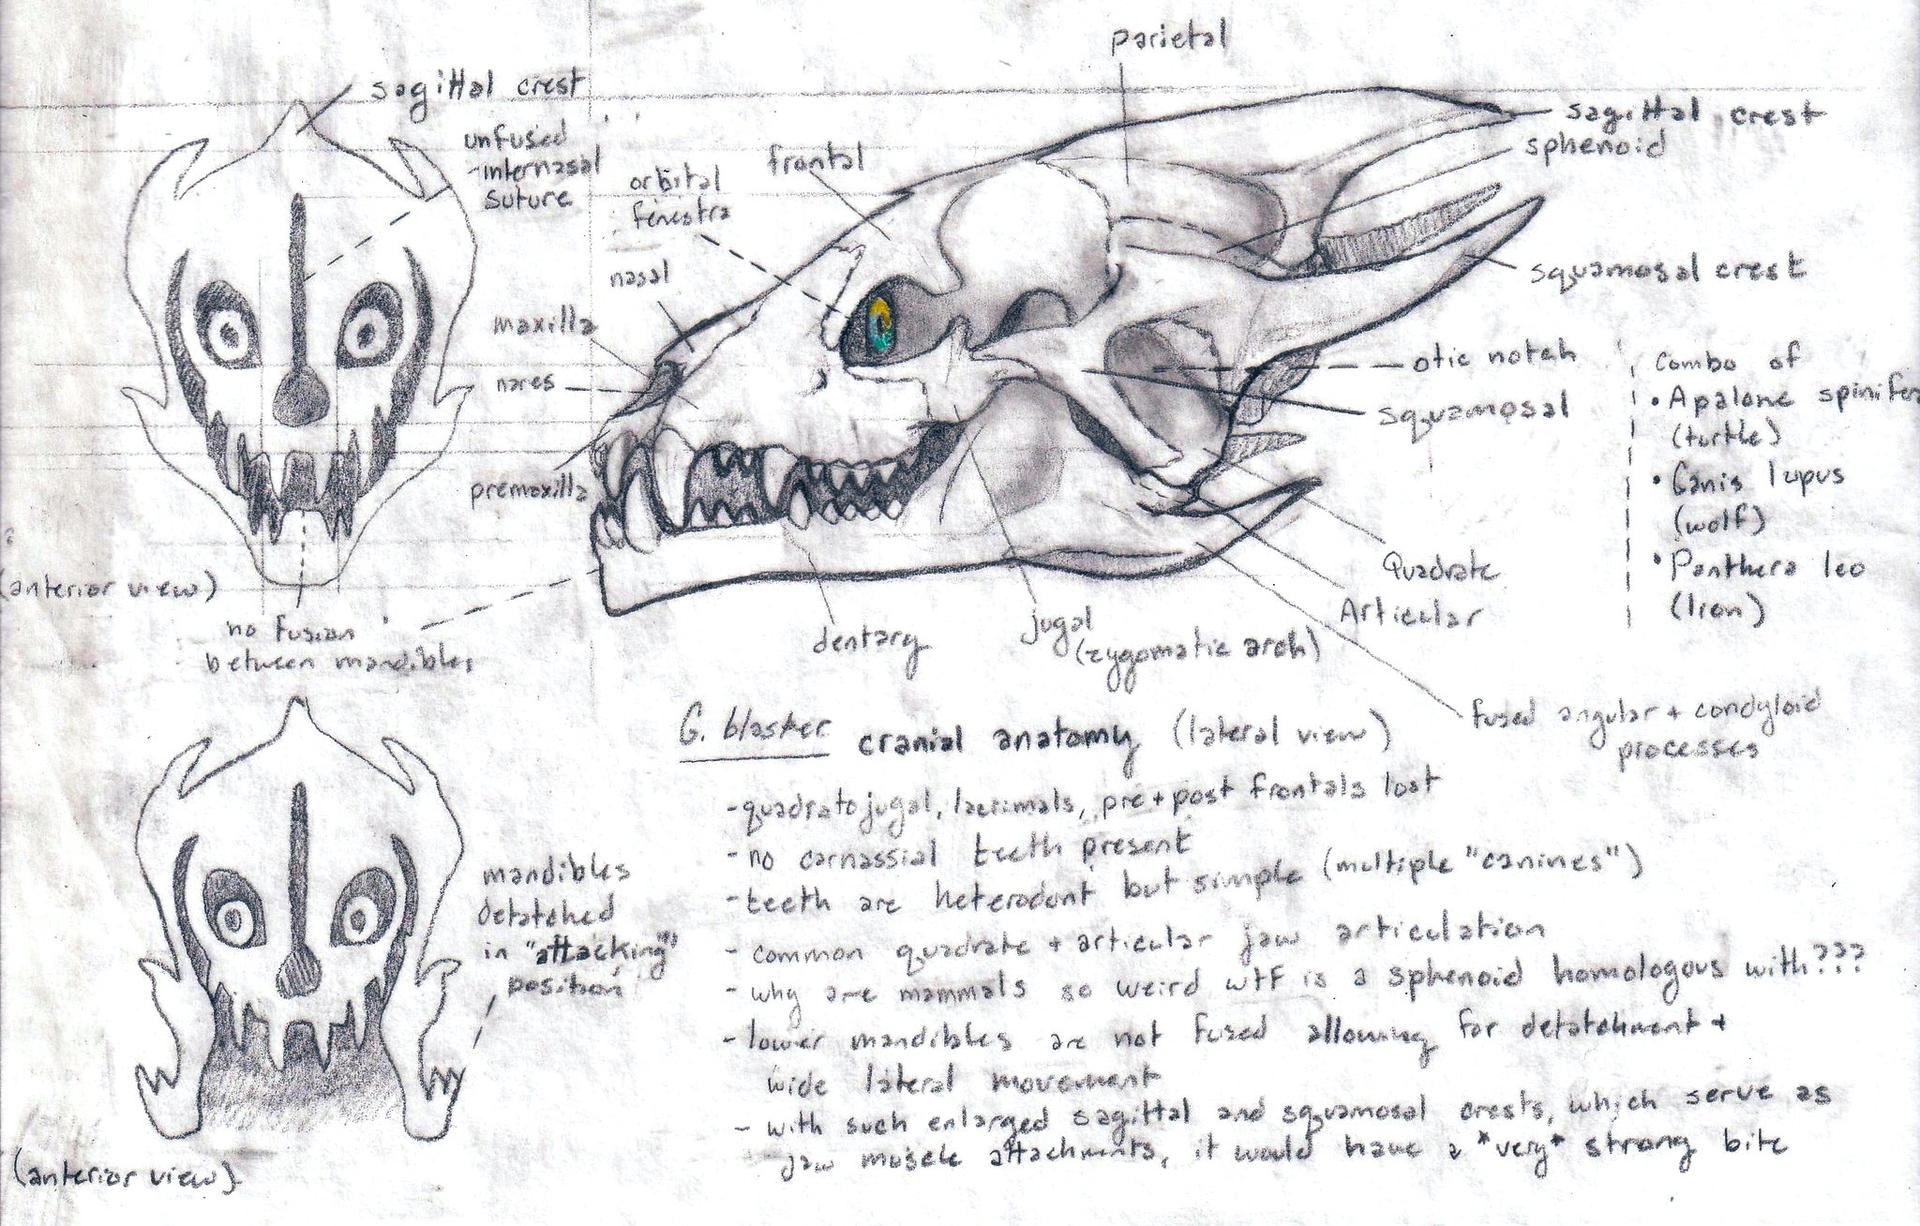 parietal
sagittal crest
sagittal crest
sphenoid
unfused
internasal
suture
orbital
fenestra
frontal
nasal
squamosal crest
maxilla
nares
otic notch
squamosal
Combo of
• Apalone spinifera
(turtle)
• Canis lupus
(wolf)
• Panthera leo
(lion)
premaxilla
(anterior view)
no fusion
between mandibles
dentary
jugal
(zygomatic arch)
Quadrate
Articular
fused angular + condyloid
processes
G. blaster cranial anatomy (lateral view)
- quadratojugal, lacrimals, pre + post frontals lost
- no carnassial teeth present
- teeth are heterodont but simple (multiple "canines")
- common quadrate + articular jaw articulation
- why are mammals so weird wtf is a sphenoid homologous with???
- lower mandibles are not fused allowing for detatchment +
wide lateral movement
- with such enlarged sagittal and squamosal crests, which serve as
jaw muscle attachments, it would have a *very* strong bite
mandibles
detatched
in "attacking"
position
(anterior view)